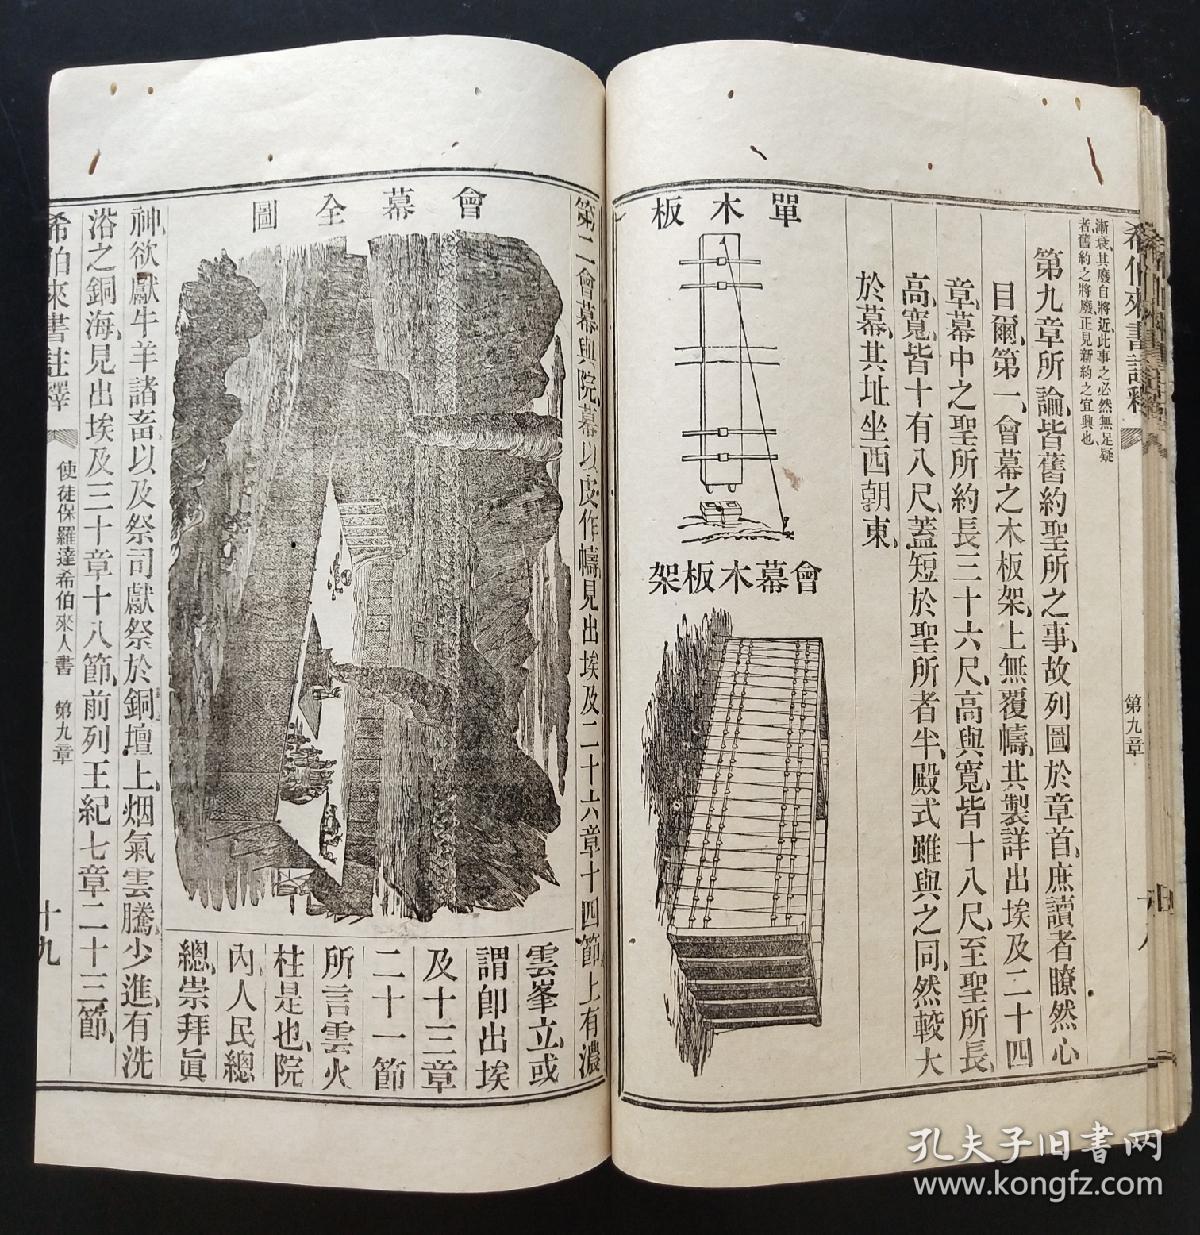 希伯來書註釋
第九章
漸衰其廢自將近此事之必然無足疑
者舊約之將廢正見新約之宜興也
第九章所論皆舊約聖所之事故列圖於章首庶讀者瞭然心
目爾第一會幕之木板架上無覆幬其製詳出埃及二十四
章幕中之聖所約長三十六尺高與寬皆十八尺至聖所長
高寬皆十有八尺蓋短於聖所者半殿式雖與之同然較大
於幕其址坐西朝東
單木板
會幕木板架
第二會幕與院幕以皮作幬見出埃及二十六章十四節上有濃
會幕全圖
雲峯立或
謂卽出埃
及十三章
二十一節
所言雲火
柱是也院
內人民總
總崇拜眞
神欲獻牛羊諸畜以及祭司獻祭於銅壇上烟氣雲騰少進有洗
浴之銅海見出埃及三十章十八節前列王紀七章二十三節
希伯來書註釋
使徒保羅達希伯來人書 第九章
十九
孔夫子旧书网
www.kongfz.com